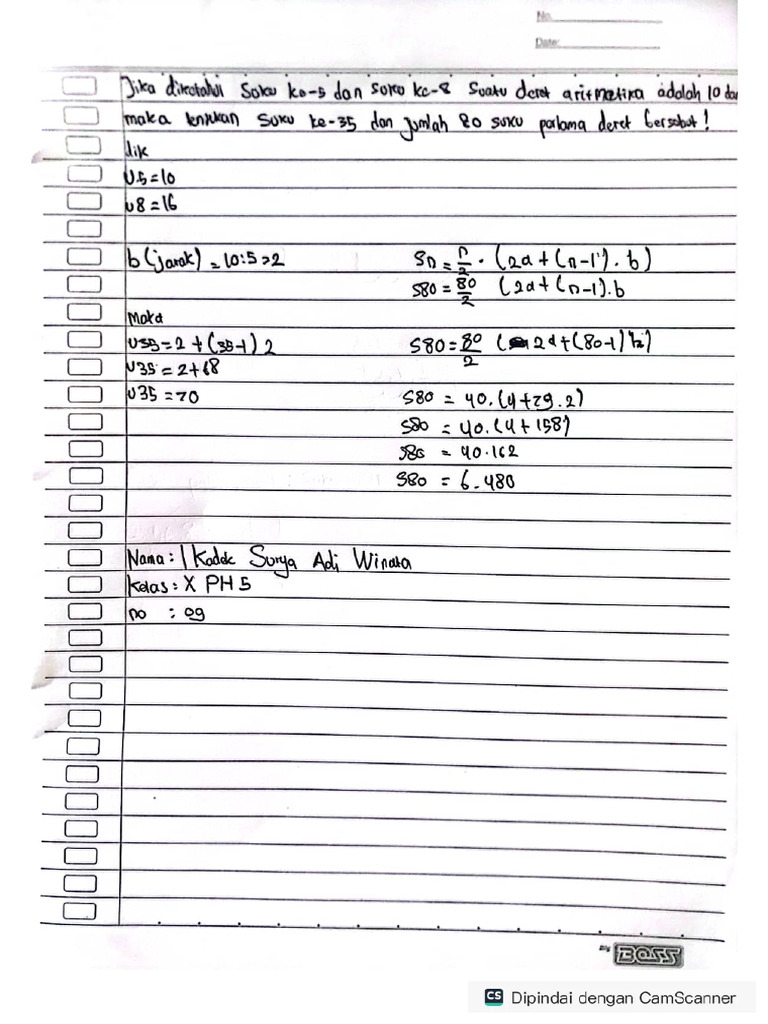 No.
Date:
Jika diketahui Suku ke-5 dan suku ke-8 Suatu deret aritmatika adalah 10 dan
maka tentukan suku ke-35 dan jumlah 80 suku pertama deret tersebut!
dik
U5=10
U8=16
b(jarak) = 10:5=2
Sn = n/2 . (2a+(n-1).b)
S80 = 80/2 (2a+(n-1).b
Maka
U35=2+(35-1)2
S80=80/2 (2a+(80-1)
U35=2+68
U35=70
S80 = 40.(4+79.2)
S80 = 40.(4+158)
S80 = 40.162
S80 = 6.480
Nama: I Kadek Surya Adi Winata
Kelas: X PH 5
no : 09
BOSS
CS Dipindai dengan CamScanner